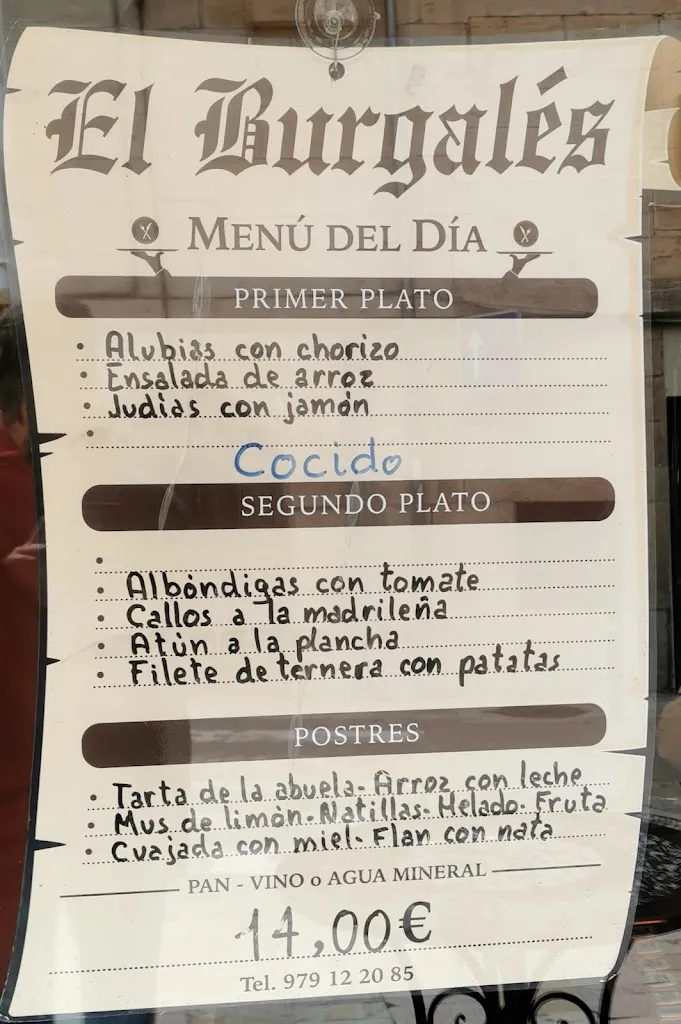 El Burgalés
MENÚ DEL DÍA
PRIMER PLATO
• Alubias con chorizo
• Ensalada de arroz
• Judias con jamón
•
Cocido
SEGUNDO PLATO
•
• Albóndigas con tomate
• Callos a la madrileña
• Atún a la plancha
• Filete de ternera con patatas
POSTRES
• Tarta de la abuela- Arroz con leche
• Mus de limón- Natillas- Helado- Fruta
• Cuajada con miel- Flan con nata
PAN - VINO o AGUA MINERAL
14,00€
Tel. 979 12 20 85